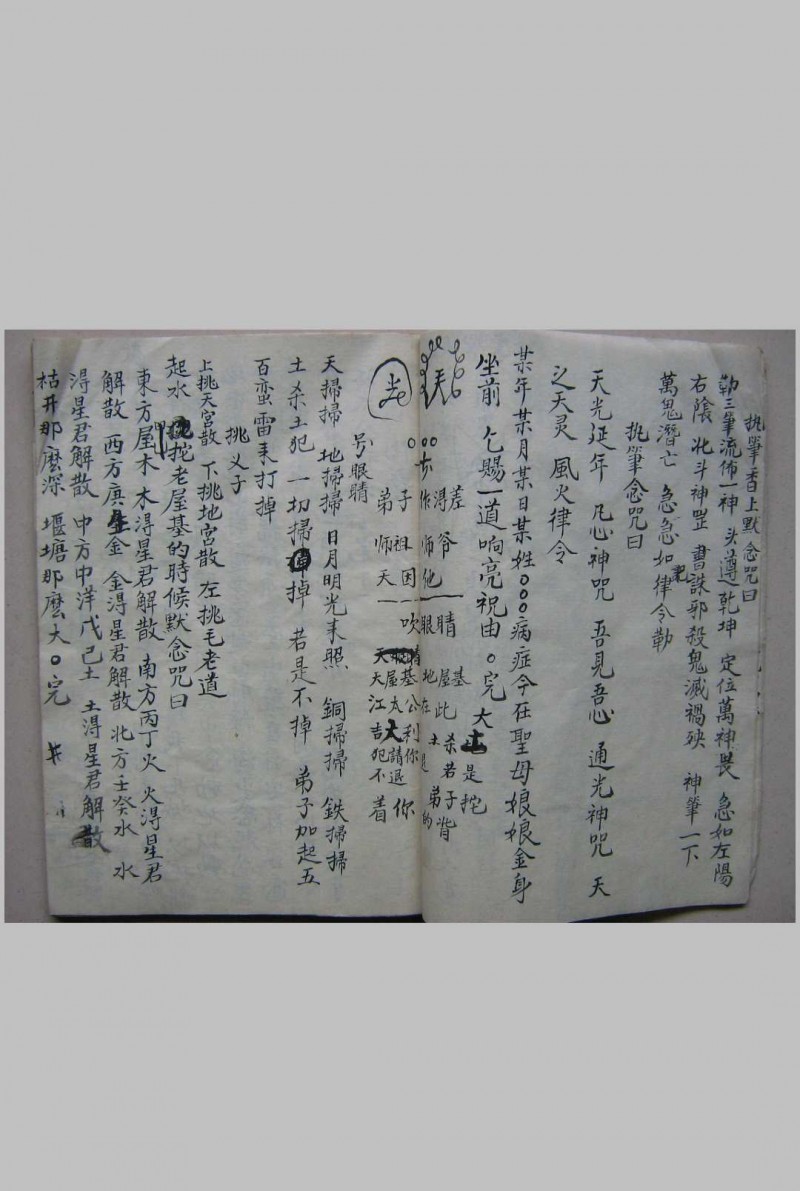 执筆香上默念咒曰
勅三筆流佈一神 头遵乾坤 定位萬神畏 急如左陽
右陰 北斗神罡 書誅邪殺鬼滅禍殃 神筆一下
萬鬼潛亡 急急如律令勒
执筆念咒曰
天光延年 凡心神咒 吾見吾心 通光神咒 天
之天灵 風火律令
某年某月某日某姓○○○病症今在聖母娘娘金身
坐前 乞賜一道响亮祝由 ○完大 是挖
淂爷 睛 屋基
差
作师他一眼 地在此 土 杀若子背
子祖因一吹
弟师天一
基公利你
屋太大請退 你
大江吉犯不着
号眼睛
天掃掃 地掃掃 日月明光来照 銅掃掃 鉄掃掃
土杀土犯 一切掃掉 若是不掉 弟子加起五
百蛮雷来打掉
挑乂子
上挑天宮散 下挑地宮散 左挑毛老道
起水 挖老屋基的時候默念咒曰
東方屋木 木淂星君解散 南方丙丁火 火淂星君
解散 西方庚金 金淂星君解散 北方壬癸水 水
淂星君解散 中方中洋戊己土 土淂星君解散
枯井那麽深 堰塘那麽大 ○完